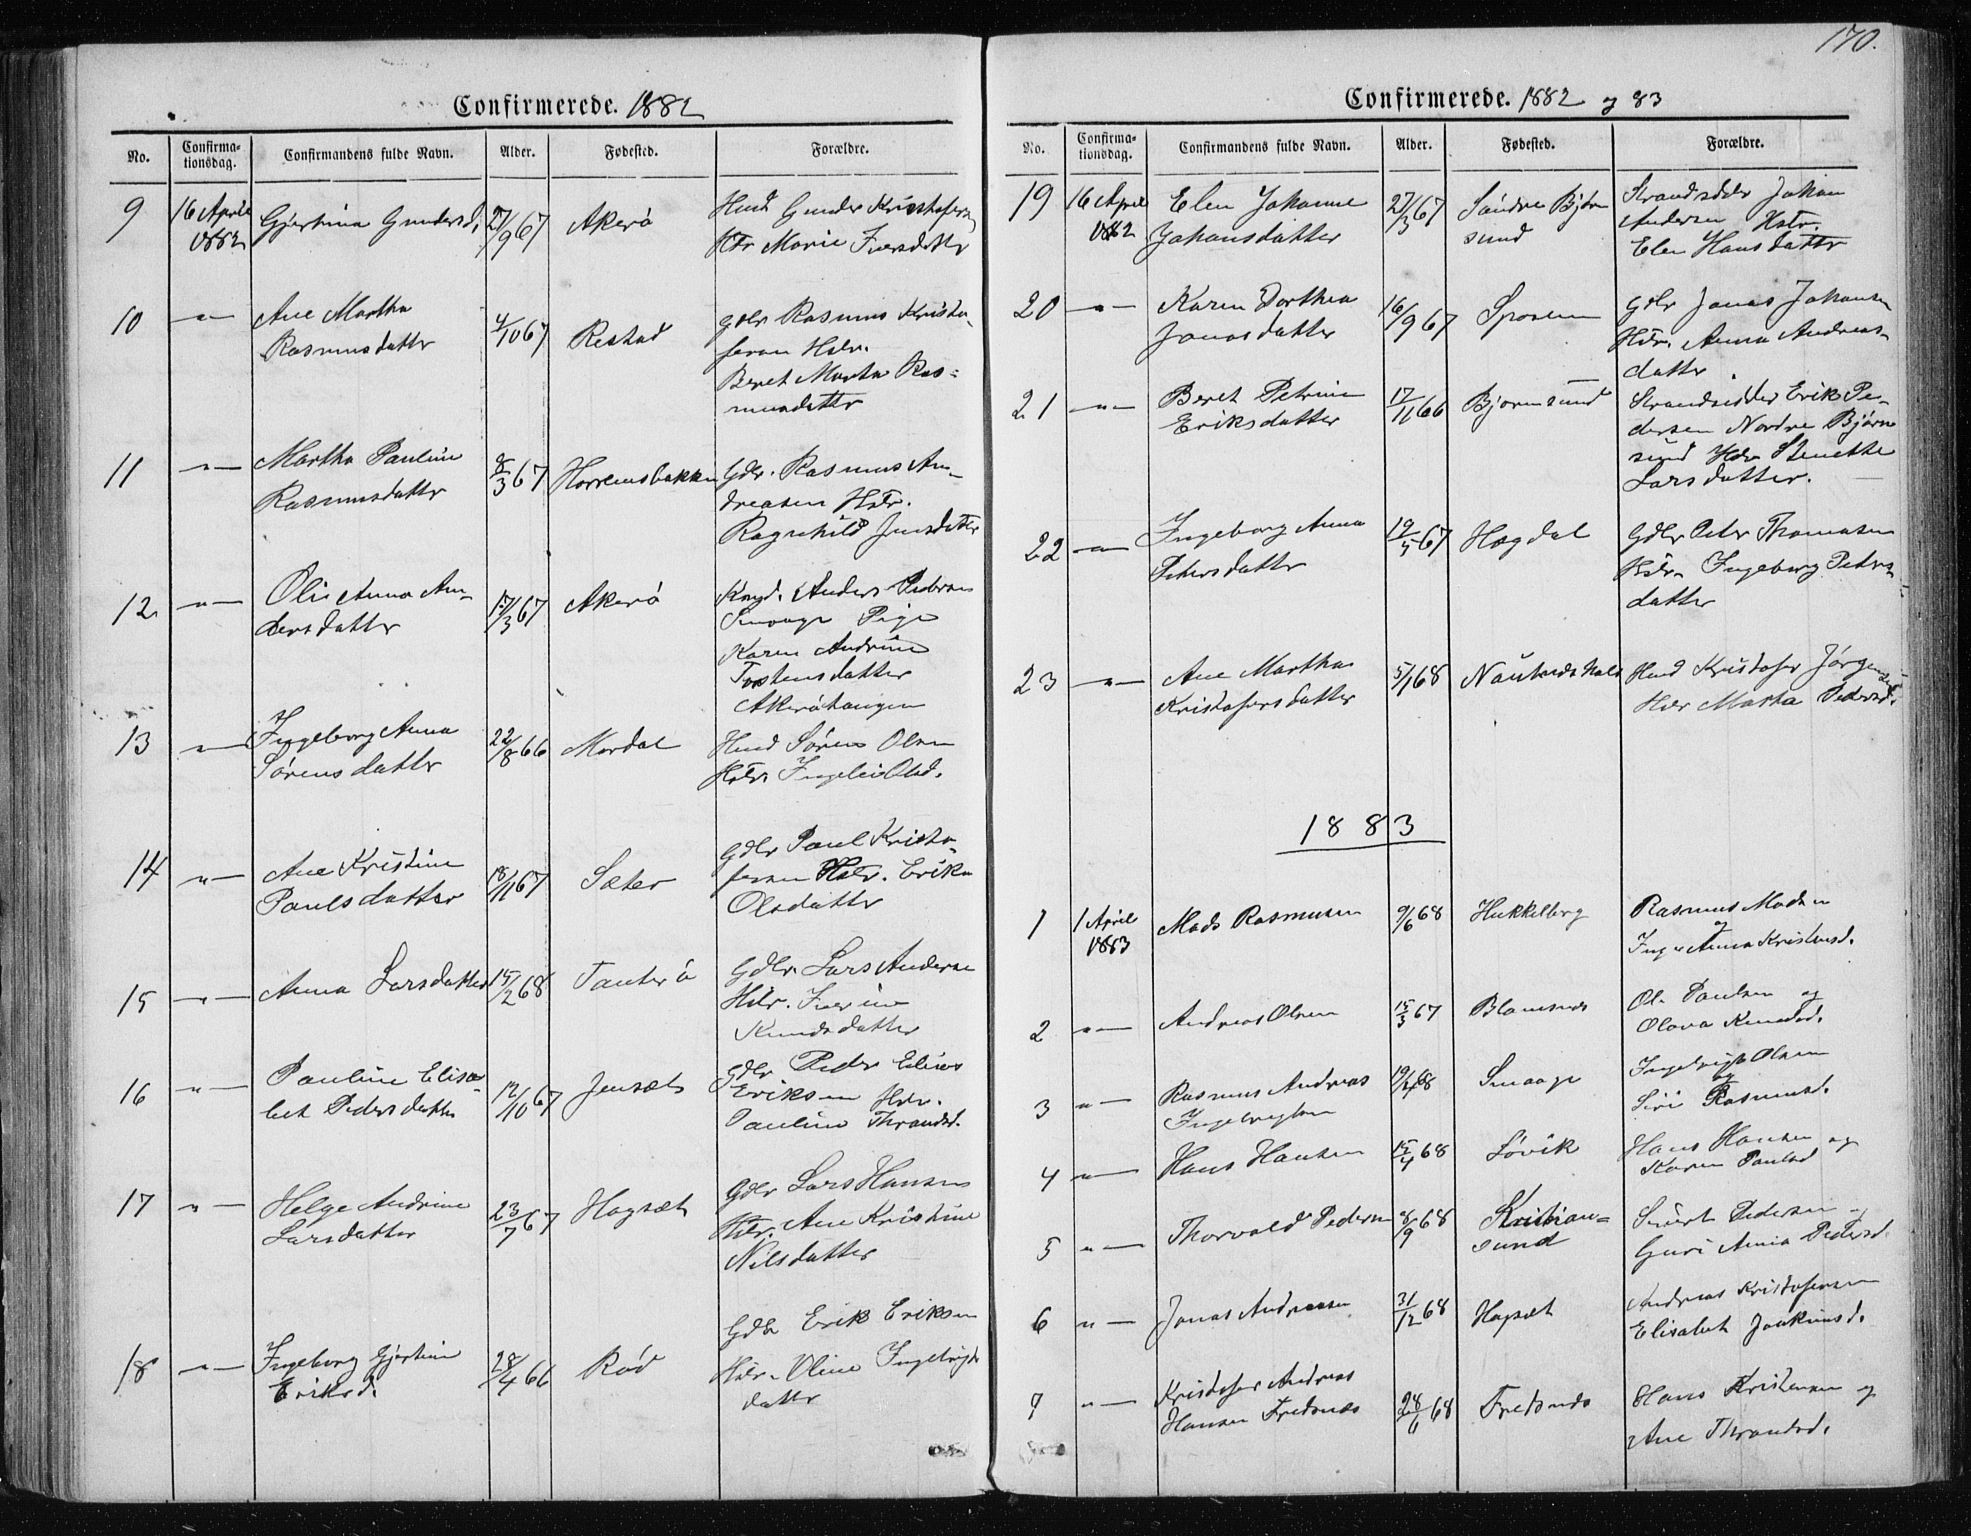 170.
Confirmerede. 1882
No. Confirma-
tionsdag. Confirmandens fulde Navn. Alder. Fødested. Forældre.
9 16 April
1882 Gjertina Gundersd. 27/9 67 Akerø Husm Gunder Kristofers
Hstr Marie Iversdatter
10 -"- Ane Martha
Rasmusdatter 4/10 67 Restad Gdbr Rasmus Kristo-
fersen Hstr.
Beret Marta Ras-
musdatter
11 -"- Martha Pauline
Rasmusdatter 8/3 67 Horremsbakken Gdbr. Rasmus An-
dreasen Hstr.
Ragnhild Jensdatter
12 -"- Anna An-
dersdatter 17/3 67 Akerø Anders Pedersen
Smaage Pige
Karen Andrine
Tostensdatter
Akerøtangen
13 -"- Ingeborg Anna
Sørensdatter 22/8 66 Mordal Husm Søren Olsen
Hstr. Ingeleiv Olsd.
14 -"- Ane Kristine
Paulsdatter 18/11 67 Sæter Gdbr Paul Kristo-
fersen Hstr. Erika
Olsdatter
15 -"- Anna Larsdatter 15/2 68 Tauterø Gdbr. Lars Andersen
Hstr. Iverine
Knudsdatter
16 -"- Pauline Elisa-
bet Pedersdatter 12/10 67 Jensæt Gdbr Peder Elias
Eriksen Hstr.
Pauline Throndsd.
17 -"- Helge Andrine
Larsdatter 23/7 67 Hagsæt Gdbr Lars Hansen
Hstr. Ane Kristine
Nilsdatter
18 -"- Ingeborg Gjertine
Eriksd. 28/4 66 Rød Gdbr Erik Eriksen
Hstr. Oline Ingebrigts
datter
Confirmerede. 1882 og 83
No. Confirma-
tionsdag. Confirmandens fulde Navn. Alder. Fødested. Forældre.
19 16 April
1882 Elen Johanne
Johansdatter 27/3 67 Søndre Bjørn
sund Strandsidder Johan
Andersen Hstr.
Elen Hansdatter
20 -"- Karen Dorthea
Jonasdatter 16/9 67 Sporsem Gdbr Jonas Johansen
Hstr. Anna Andreas-
datter
21 -"- Beret Petrine
Eriksdatter 17/11 66 Bjørnsund Strandsidder Erik Pe-
dersen Nordre Bjørn
sund Hstr
Larsdatter.
22 -"- Ingeborg Anna
Petersdatter 19/5 67 Hagdal Gdbr Peter Thomasen
Hstr. Ingeborg Peders
datter
23 -"- Ane Martha
Kristofersdatter 5/1 68 Husm Kristofer Jørgensen
Hstr Marta Pedersd.
1883
1 1 April
1883 Mads Rasmusen 9/6 68 Hukkelberg Rasmus Madsen
og
Inger Anna Kristensd.
2 -"- Andreas Olsen 15/3 67 Ole Paulsen og
Olava Knudsd.
3 -"- Rasmus Andreas
Ingebrigtsen 19/4 68 Smaage Ingebrigt Olsen
og
Siri Rasmusd.
4 -"- Hans Hansen 15/4 68 Løvik Hans Hansen og
Karen Paulsd
5 -"- Thorvald Pedersen 8/9 68 Kristian-
sund Sivert Pedersen og
Guri Anna Pedersd.
6 -"- Jonas Andreasen 31/12 68 Hagsæt Andreas Kristofersen
Elisabet Joakimsd.
7 -"- Kristofer Andreas
Hansen Fredsnes 28/6 68 Fredsnes Hans Kristensen og
Ane Throndsd.